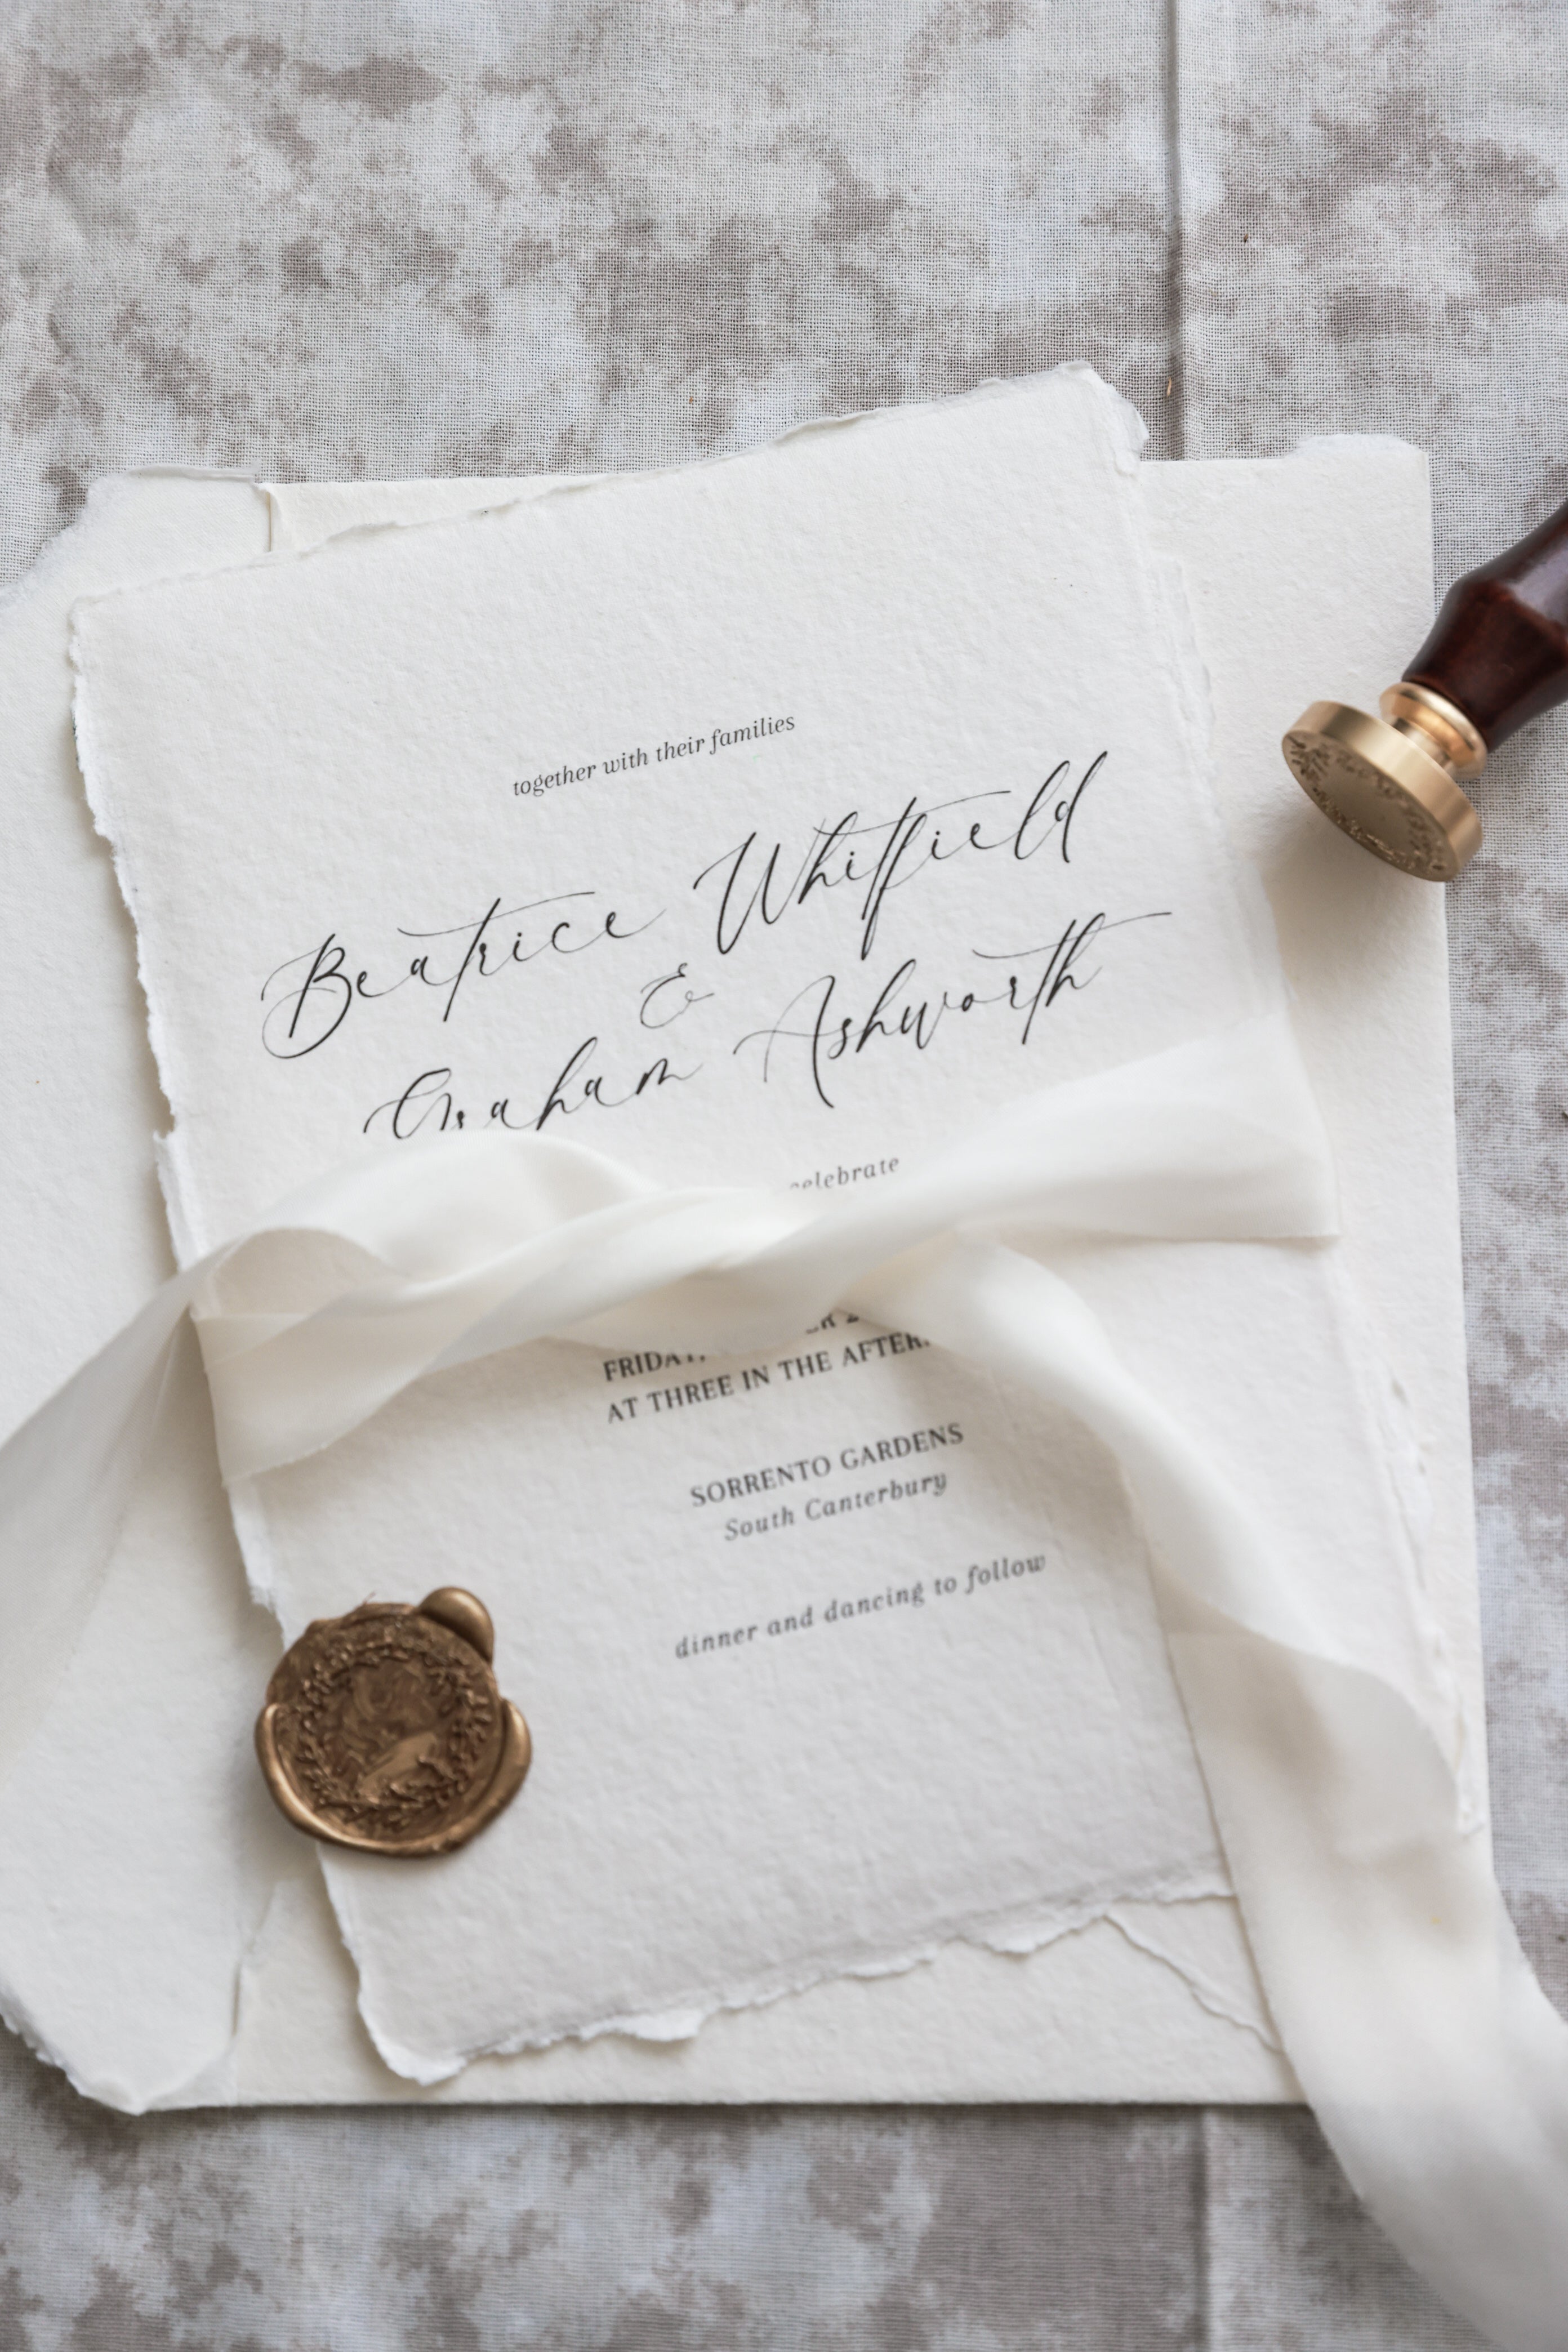 together with their families
Beatrice Whitfield
&
Graham Ashworth
celebrate
FRIDAY,
AT THREE IN THE
SORRENTO GARDENS
South Canterbury
dinner and dancing to follow